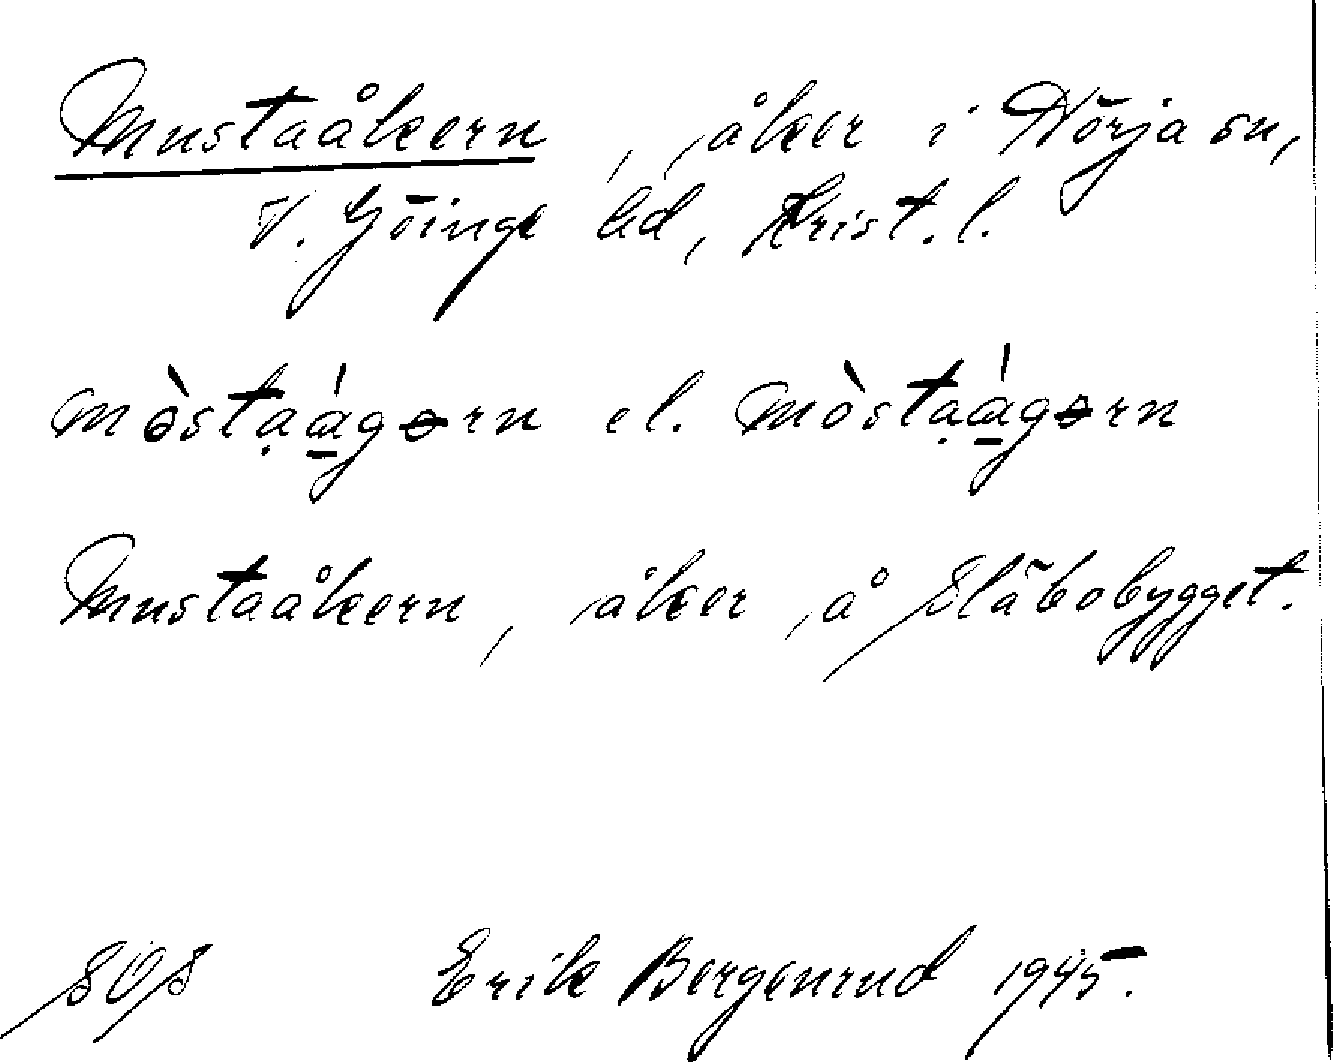 Mustaåkern, åker i Nörja sn,
V. Göinge hd, Krist. l.
mòstạá̱gərn el. mòstạá̱gərn
Mustaåkern, åker å Slätbobygget.
SOS Erik Bergenrud 1945.